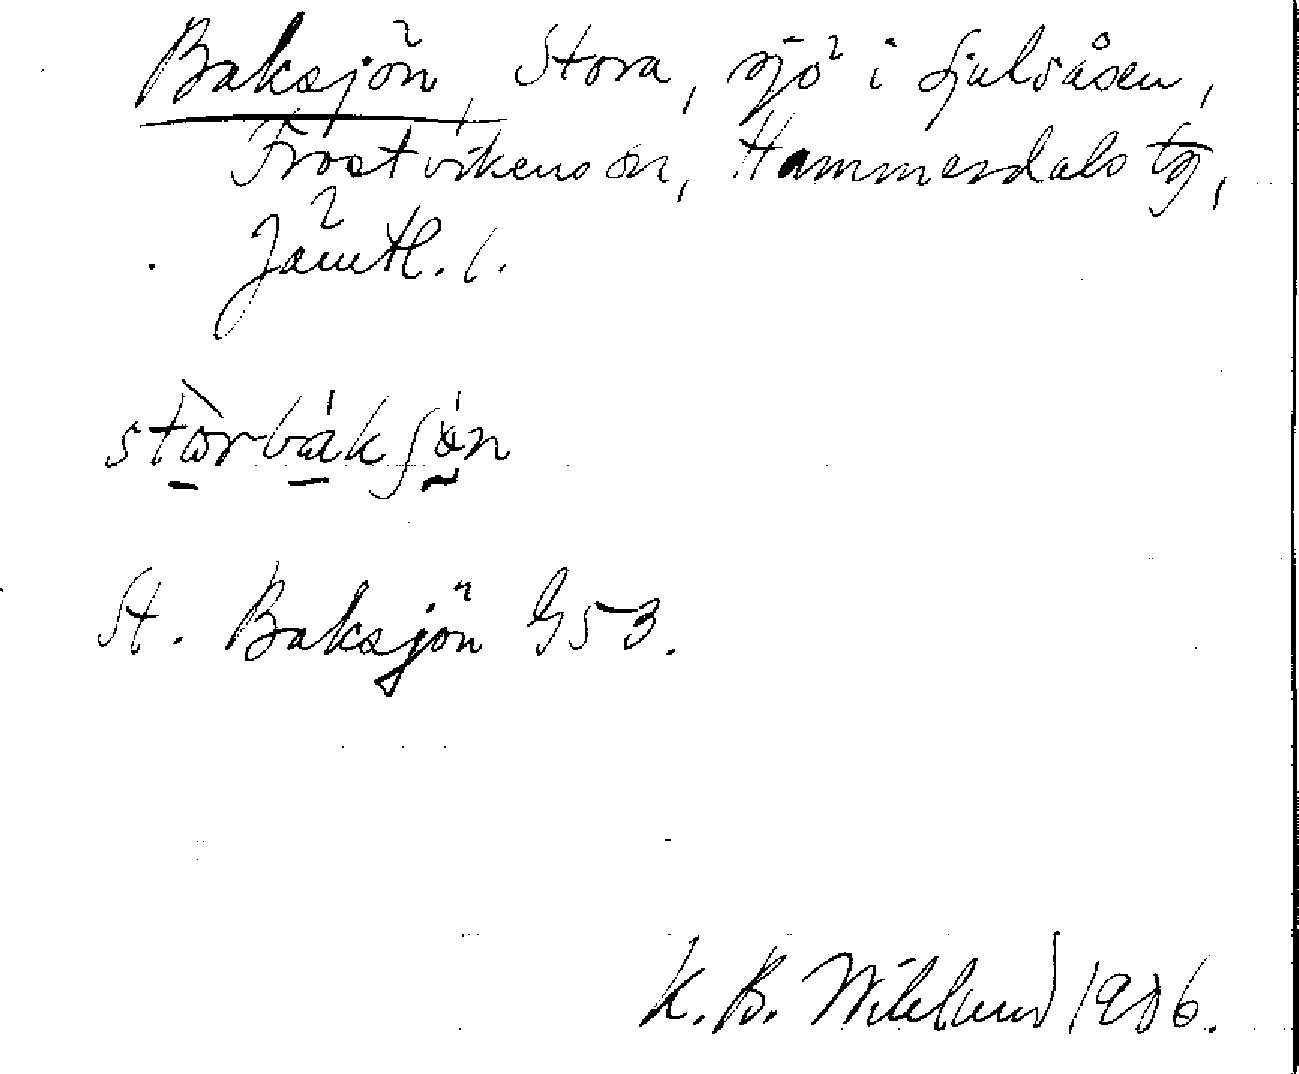 Baksjön, Stora, sjö i Sjulsåsen,
Frostvikens sn, Hammerdals tg,
Jämtl. l.
stòrbákʃö́n
St. Baksjön G53.
K. B. Wiklund 1906.